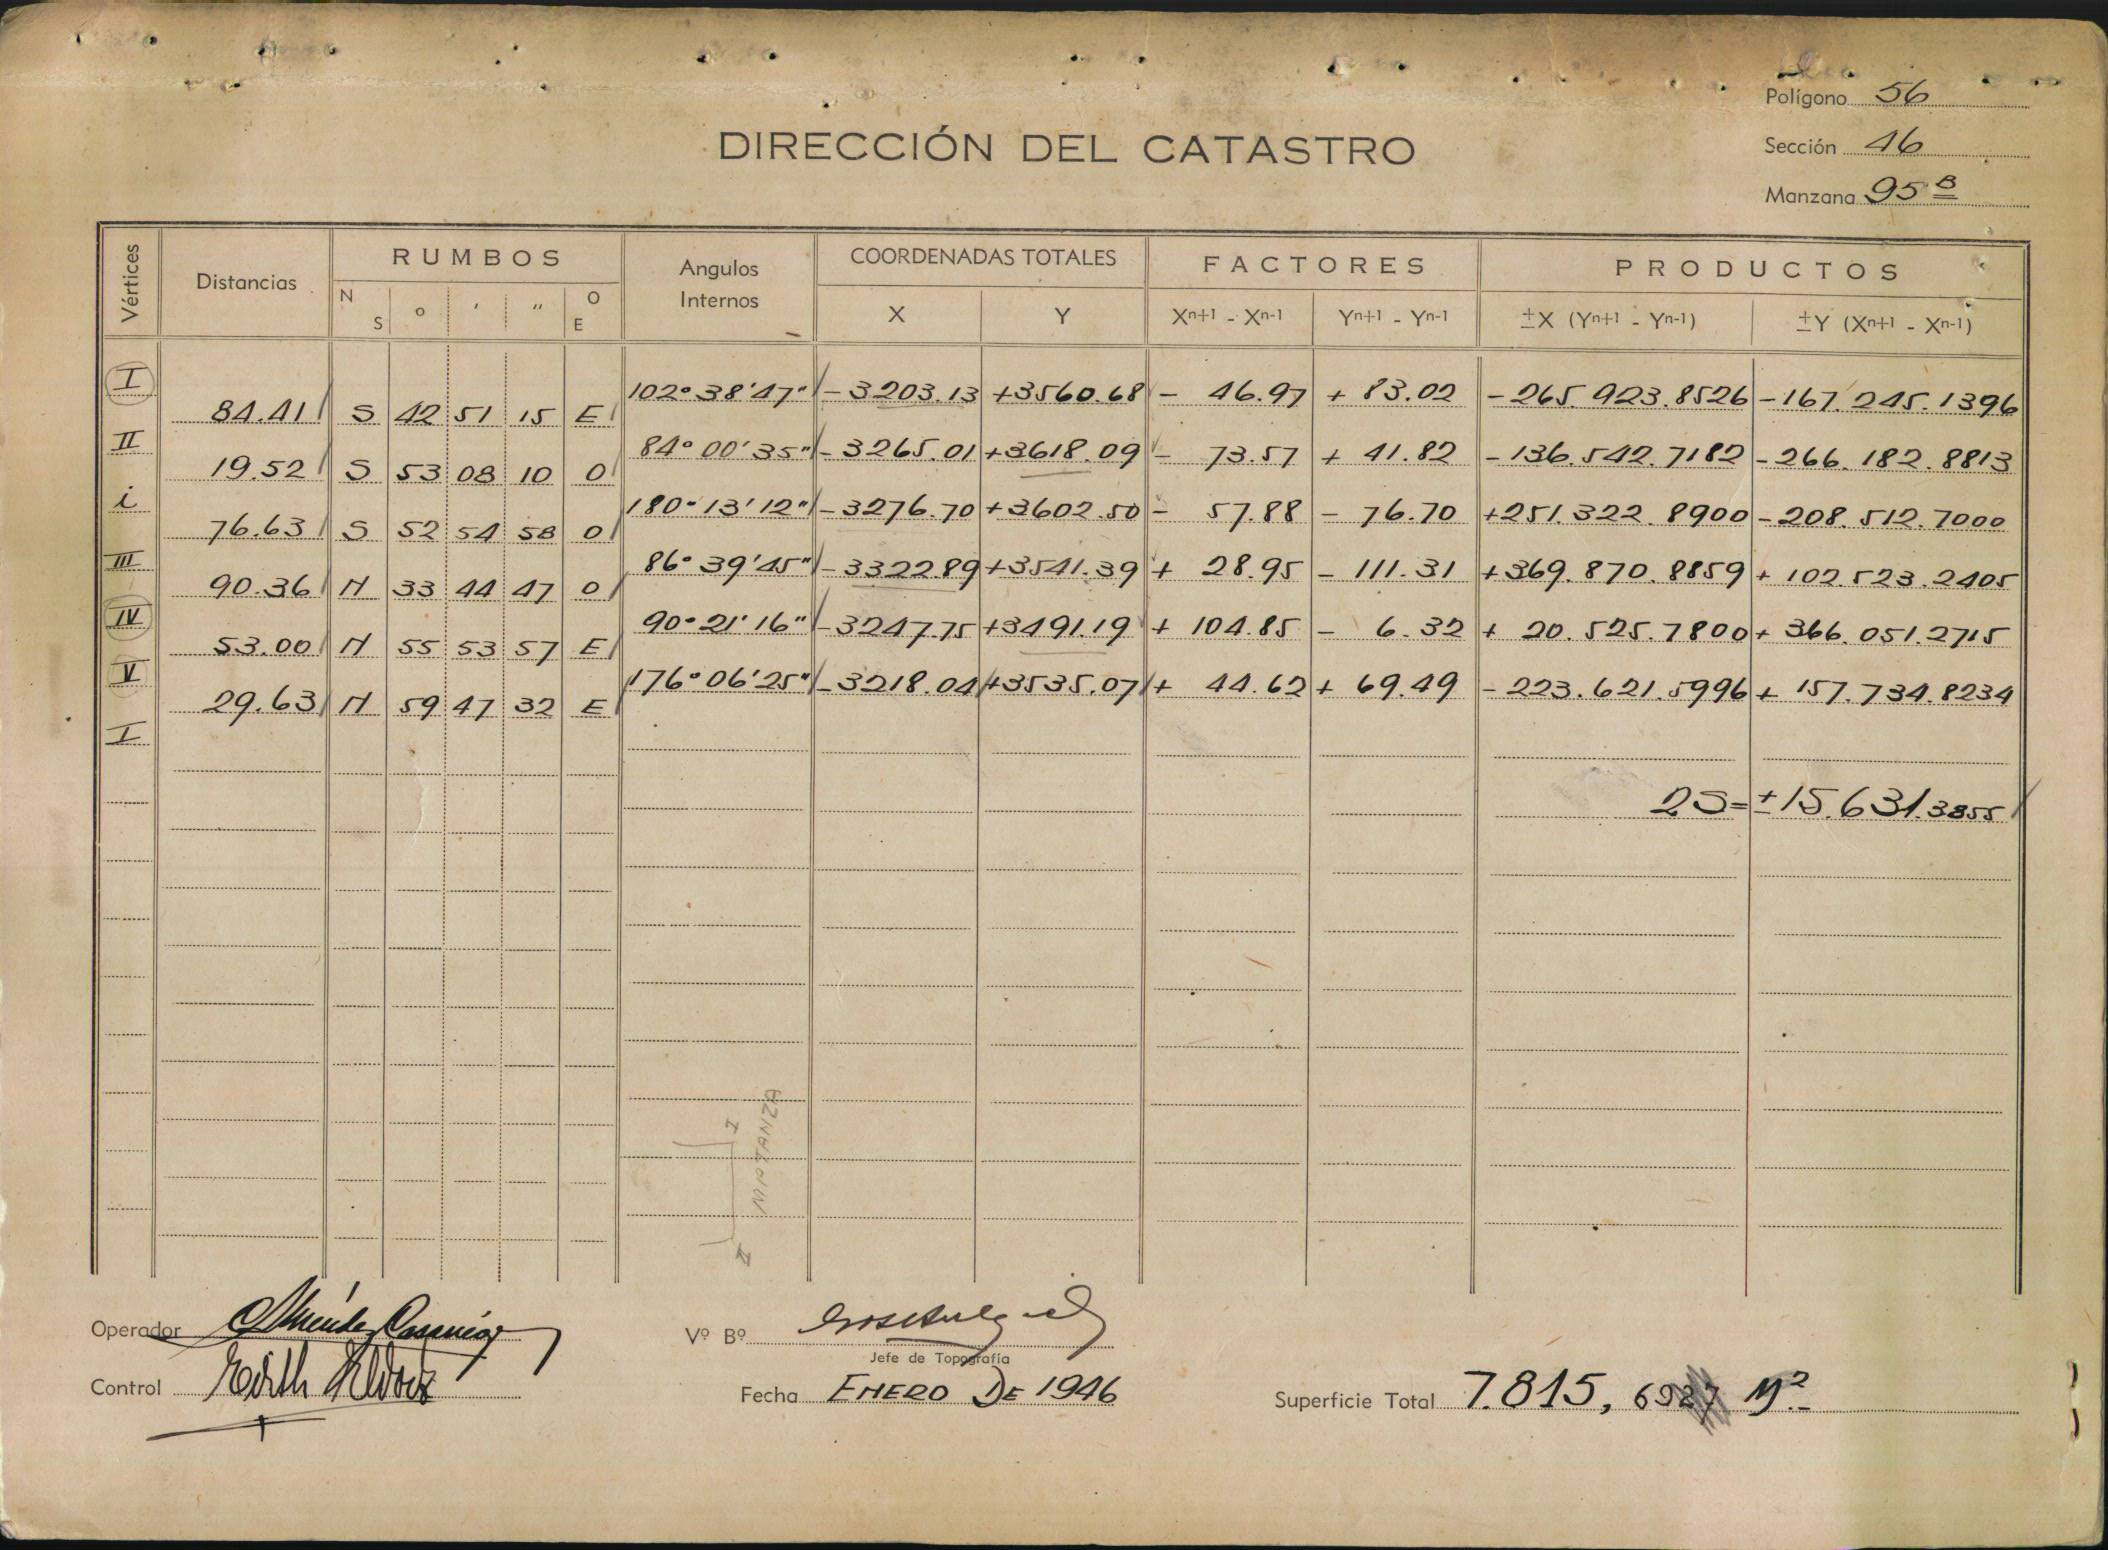 Polígono 56
DIRECCIÓN DEL CATASTRO
Sección 46
Manzana 95 B
Vértices Distancias RUMBOS Angulos Internos COORDENADAS TOTALES FACTORES PRODUCTOS
N S o ′ ″ O E X Y Xn+1 - Xn-1 Yn+1 - Yn-1 ±X (Yn+1 - Yn-1) ±Y (Xn+1 - Xn-1)
I 102° 38' 47" - 3203.13 +3560.68 - 46.97 + 83.02 - 265.923.8526 - 167.245.1396
84.41 S 42 51 15 E
II 84° 00' 35" - 3265.01 +3618.09 - 73.57 + 41.82 - 136.542.7182 - 266.182.8813
19.52 S 53 08 10 O
i 180° 13' 12" - 3276.70 +3602.50 - 57.88 - 76.70 +251.322.8900 - 208.512.7000
76.63 S 52 54 58 O
III 86° 39' 45" - 3322.89 +3541.39 + 28.95 - 111.31 +369.870.8859 + 102.523.2405
90.36 N 33 44 47 O
IV 90° 21' 16" - 3247.75 +3491.19 + 104.85 - 6.32 + 20.525.7800 + 366.051.2715
53.00 N 55 53 57 E
V 176° 06' 25" - 3218.04 +3535.07 + 44.62 + 69.49 - 223.621.5996 + 157.734.8234
29.63 N 59 47 32 E
I
2S = ±15.631.3855
I MANZANA II
Operador
Vº Bº
Jefe de Topografía
Control
Fecha ENERO DE 1946
Superficie Total 7.815, 6927 M²